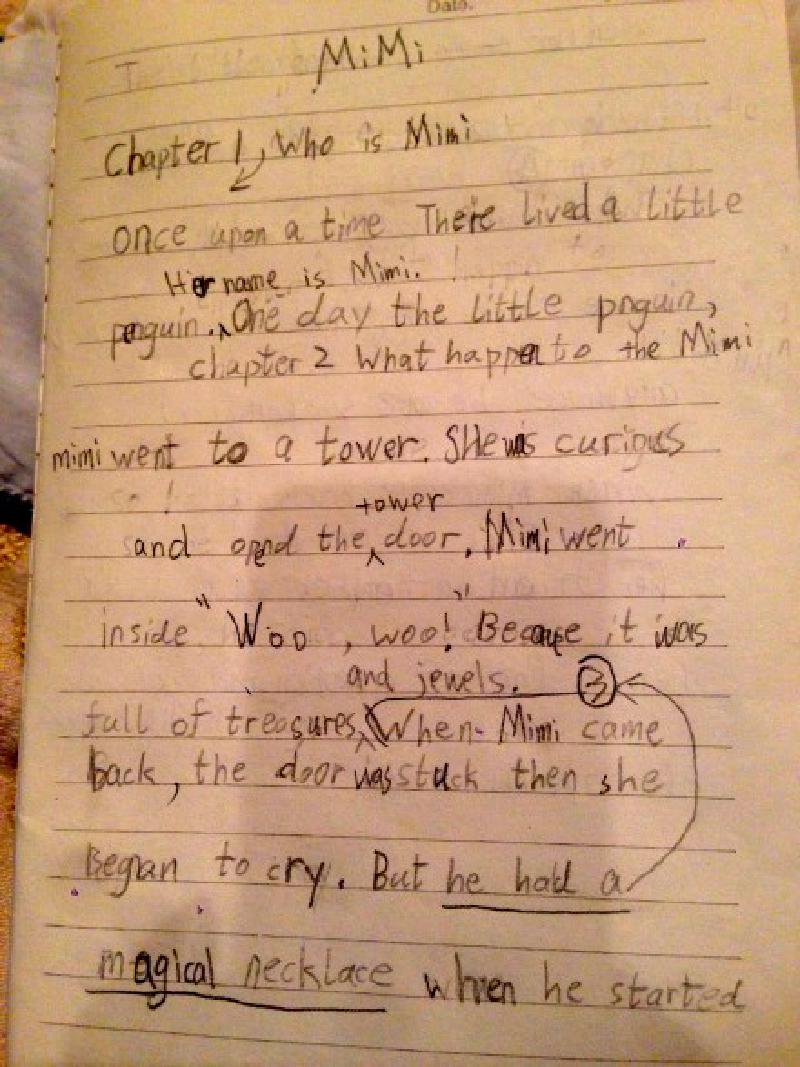 Date.
MiMi
Chapter 1, Who is Mimi
Once upon a time There lived a little
Her name is Mimi.
penguin. One day the little pnguin,
chapter 2 What happen to the Mimi
mimi went to a tower. She was curigus
tower
and opend the door, Mimi went
inside "Woo, woo!" Because it was
and jewels. 3
full of treasures, When Mimi came
back, the door was stuck then she
Began to cry. But he had a
magical necklace when he started